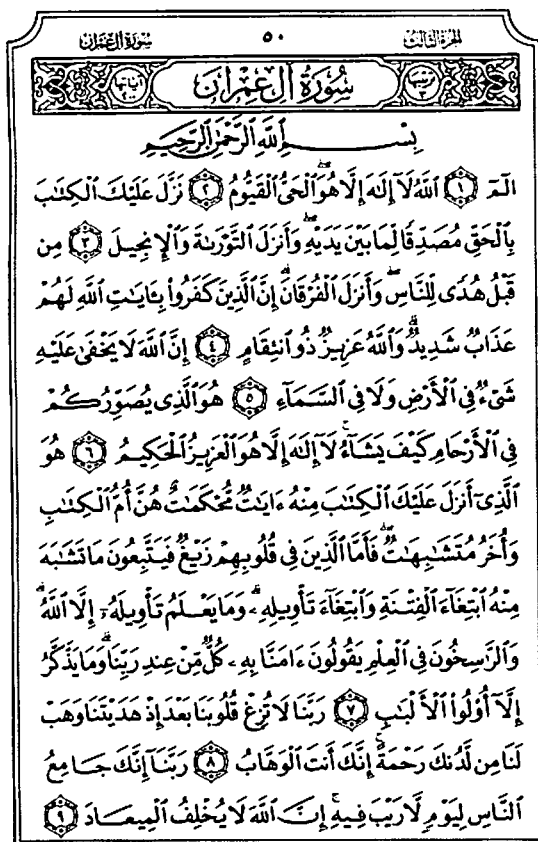 الجزء الثالث ٥٠ سورة آل عمران
ترتيبها ٣ سُورَةُ آلِ عِمْرَان آياتها ٢٠٠
بِسْمِ اللَّهِ الرَّحْمَٰنِ الرَّحِيمِ
الٓمٓ ١ ٱللَّهُ لَآ إِلَٰهَ إِلَّا هُوَ ٱلْحَىُّ ٱلْقَيُّومُ ٢ نَزَّلَ عَلَيْكَ ٱلْكِتَٰبَ
بِٱلْحَقِّ مُصَدِّقًا لِّمَا بَيْنَ يَدَيْهِ وَأَنزَلَ ٱلتَّوْرَىٰةَ وَٱلْإِنجِيلَ ٣ مِن
قَبْلُ هُدًى لِّلنَّاسِ وَأَنزَلَ ٱلْفُرْقَانَ إِنَّ ٱلَّذِينَ كَفَرُوا۟ بِـَٔايَٰتِ ٱللَّهِ لَهُمْ
عَذَابٌ شَدِيدٌ وَٱللَّهُ عَزِيزٌ ذُو ٱنتِقَامٍ ٤ إِنَّ ٱللَّهَ لَا يَخْفَىٰ عَلَيْهِ
شَىْءٌ فِى ٱلْأَرْضِ وَلَا فِى ٱلسَّمَآءِ ٥ هُوَ ٱلَّذِى يُصَوِّرُكُمْ
فِى ٱلْأَرْحَامِ كَيْفَ يَشَآءُ لَآ إِلَٰهَ إِلَّا هُوَ ٱلْعَزِيزُ ٱلْحَكِيمُ ٦ هُوَ
ٱلَّذِىٓ أَنزَلَ عَلَيْكَ ٱلْكِتَٰبَ مِنْهُ ءَايَٰتٌ مُّحْكَمَٰتٌ هُنَّ أُمُّ ٱلْكِتَٰبِ
وَأُخَرُ مُتَشَٰبِهَٰتٌ فَأَمَّا ٱلَّذِينَ فِى قُلُوبِهِمْ زَيْغٌ فَيَتَّبِعُونَ مَا تَشَٰبَهَ
مِنْهُ ٱبْتِغَآءَ ٱلْفِتْنَةِ وَٱبْتِغَآءَ تَأْوِيلِهِۦ وَمَا يَعْلَمُ تَأْوِيلَهُۥٓ إِلَّا ٱللَّهُ
وَٱلرَّٰسِخُونَ فِى ٱلْعِلْمِ يَقُولُونَ ءَامَنَّا بِهِۦ كُلٌّ مِّنْ عِندِ رَبِّنَا وَمَا يَذَّكَّرُ
إِلَّآ أُو۟لُوا۟ ٱلْأَلْبَٰبِ ٧ رَبَّنَا لَا تُزِغْ قُلُوبَنَا بَعْدَ إِذْ هَدَيْتَنَا وَهَبْ
لَنَا مِن لَّدُنكَ رَحْمَةً إِنَّكَ أَنتَ ٱلْوَهَّابُ ٨ رَبَّنَآ إِنَّكَ جَامِعُ
ٱلنَّاسِ لِيَوْمٍ لَّا رَيْبَ فِيهِ إِنَّ ٱللَّهَ لَا يُخْلِفُ ٱلْمِيعَادَ ٩